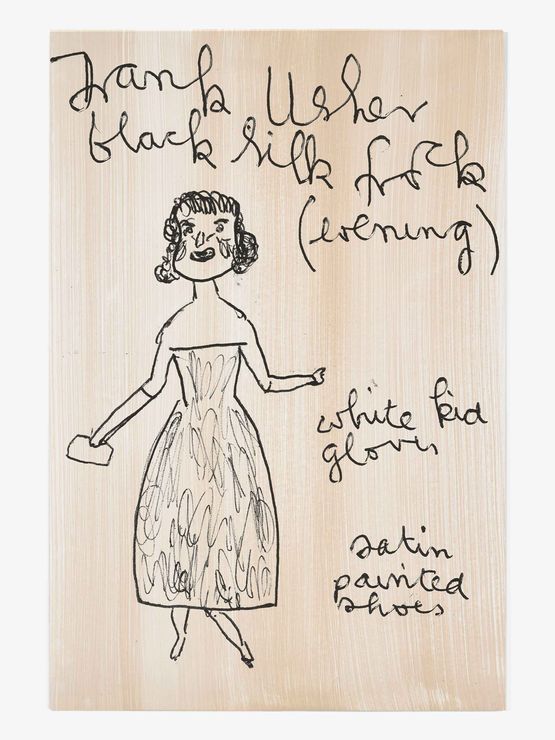 Frank Usher
black silk frock
(evening)
white kid
gloves
satin
painted
shoes